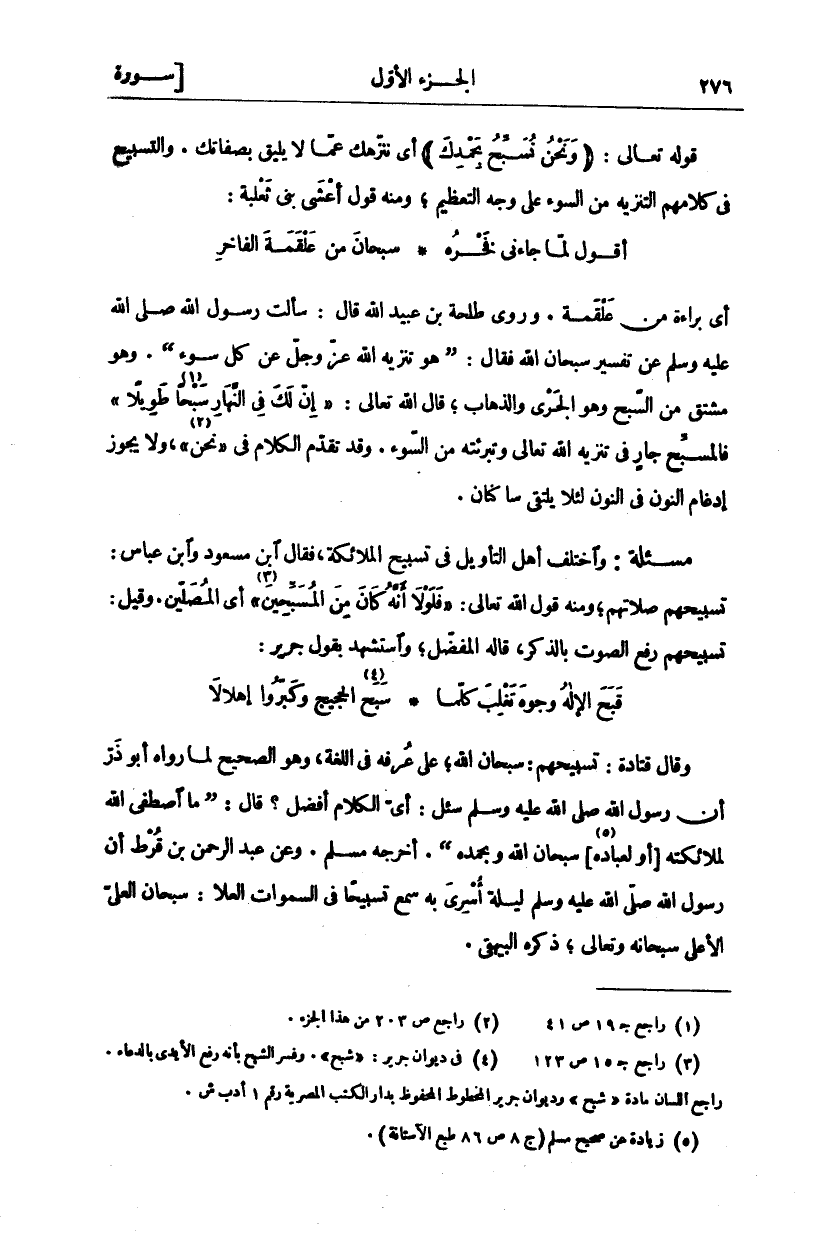 ٢٧٦ الجـــزء الأوّل [ســـورة
قوله تعـالى : ﴿ وَنَحْنُ نُسَـبِّحُ بِحَمْدِكَ ﴾ أى ننزّهك عمّـا لا يليق بصفاتك . والتسبيح
فى كلامهم التنزيه من السوء على وجه التعظيم ؛ ومنه قول أعْشَى بنى ثَعْلبة :
أقـول لمّـا جاءنى فَخْـرُه * سبحانَ من عَلْقَمَـةَ الفاخرِ
أى براءة من عَلْقَمـة . وروى طلحة بن عبيد الله قال : سألت رسـول الله صـلى الله
عليه وسلم عن تفسير سبحان الله فقال : ” هو تنزيه الله عزّ وجلّ عن كل سـوء “ . وهو
مشتق من السَّبح وهو الجَرْى والذهاب ؛ قال الله تعالى : « إِنَّ لَكَ فِى النَّهَارِ سَبْحًا طَوِيلًا » (١)
فالمسـبِّح جارٍ فى تنزيه الله تعالى وتبرئته من السّوء . وقد تقدّم الكلام فى «نحن» (٢)، ولا يجوز
إدغام النون فى النون لئلا يلتقى ساكنان .
مسـئلة : وٱختلف أهل التأويل فى تسبيح الملائكة، فقال ٱبن مسعود وٱبن عباس :
تسبيحهم صلاتهم؛ ومنه قول الله تعالى: «فَلَوْلَا أَنَّهُ كَانَ مِنَ الْمُسَبِّحِينَ» (٣) أى المُصَلّين. وقيل :
تسبيحهم رفع الصوت بالذكر، قاله المفضّل؛ وٱستشهد بقول جرير :
قَبَحَ الإلٰهُ وجوهَ تَغْلِبَ كلّما * سَبَح (٤) الحجيج وكَبّروا إهلالَا
وقال قتادة : تسبيحهم : سبحان الله؛ على عُرفه فى اللغة، وهو الصحيح لمـا رواه أبو ذَرّ
أن رسول الله صلى الله عليه وسلم سئل : أىّ الكلام أفضل ؟ قال : ” ما ٱصطفى الله
لملائكته [أو لعباده] (٥) سبحان الله وبحمده “ . أخرجه مسلم . وعن عبد الرحمن بن قُرْط أن
رسول الله صلّى الله عليه وسلم ليلة أُسْرِىَ به سمع تسبيحًا فى السموات العلا : سبحان العلىّ
الأعلى سبحانه وتعالى ؛ ذكره البيهقى .
(١) راجع جـ ١٩ ص ٤١ (٢) راجع ص ٢٠٣ من هذا الجزء .
(٣) راجع جـ ١٥ ص ١٢٣ (٤) فى ديوان جرير : «شبح» . وفسر الشبح بأنه رفع الأيدى بالدعاء .
راجع اللسان مادة « شبح » وديوان جرير المخطوط المحفوظ بدار الكتب المصرية رقم ١ أدب ش .
(٥) زيادة عن صحيح مسلم (ج ٨ ص ٨٦ طبع الآستانة) .